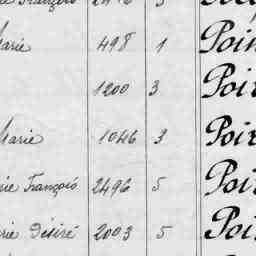 François 2476 5
Marie 498 1 Poin
1200 3 Poir
Marie 1046 3 Poir
rie François 2496 5 Poir
rie Désiré 2003 5 Poi